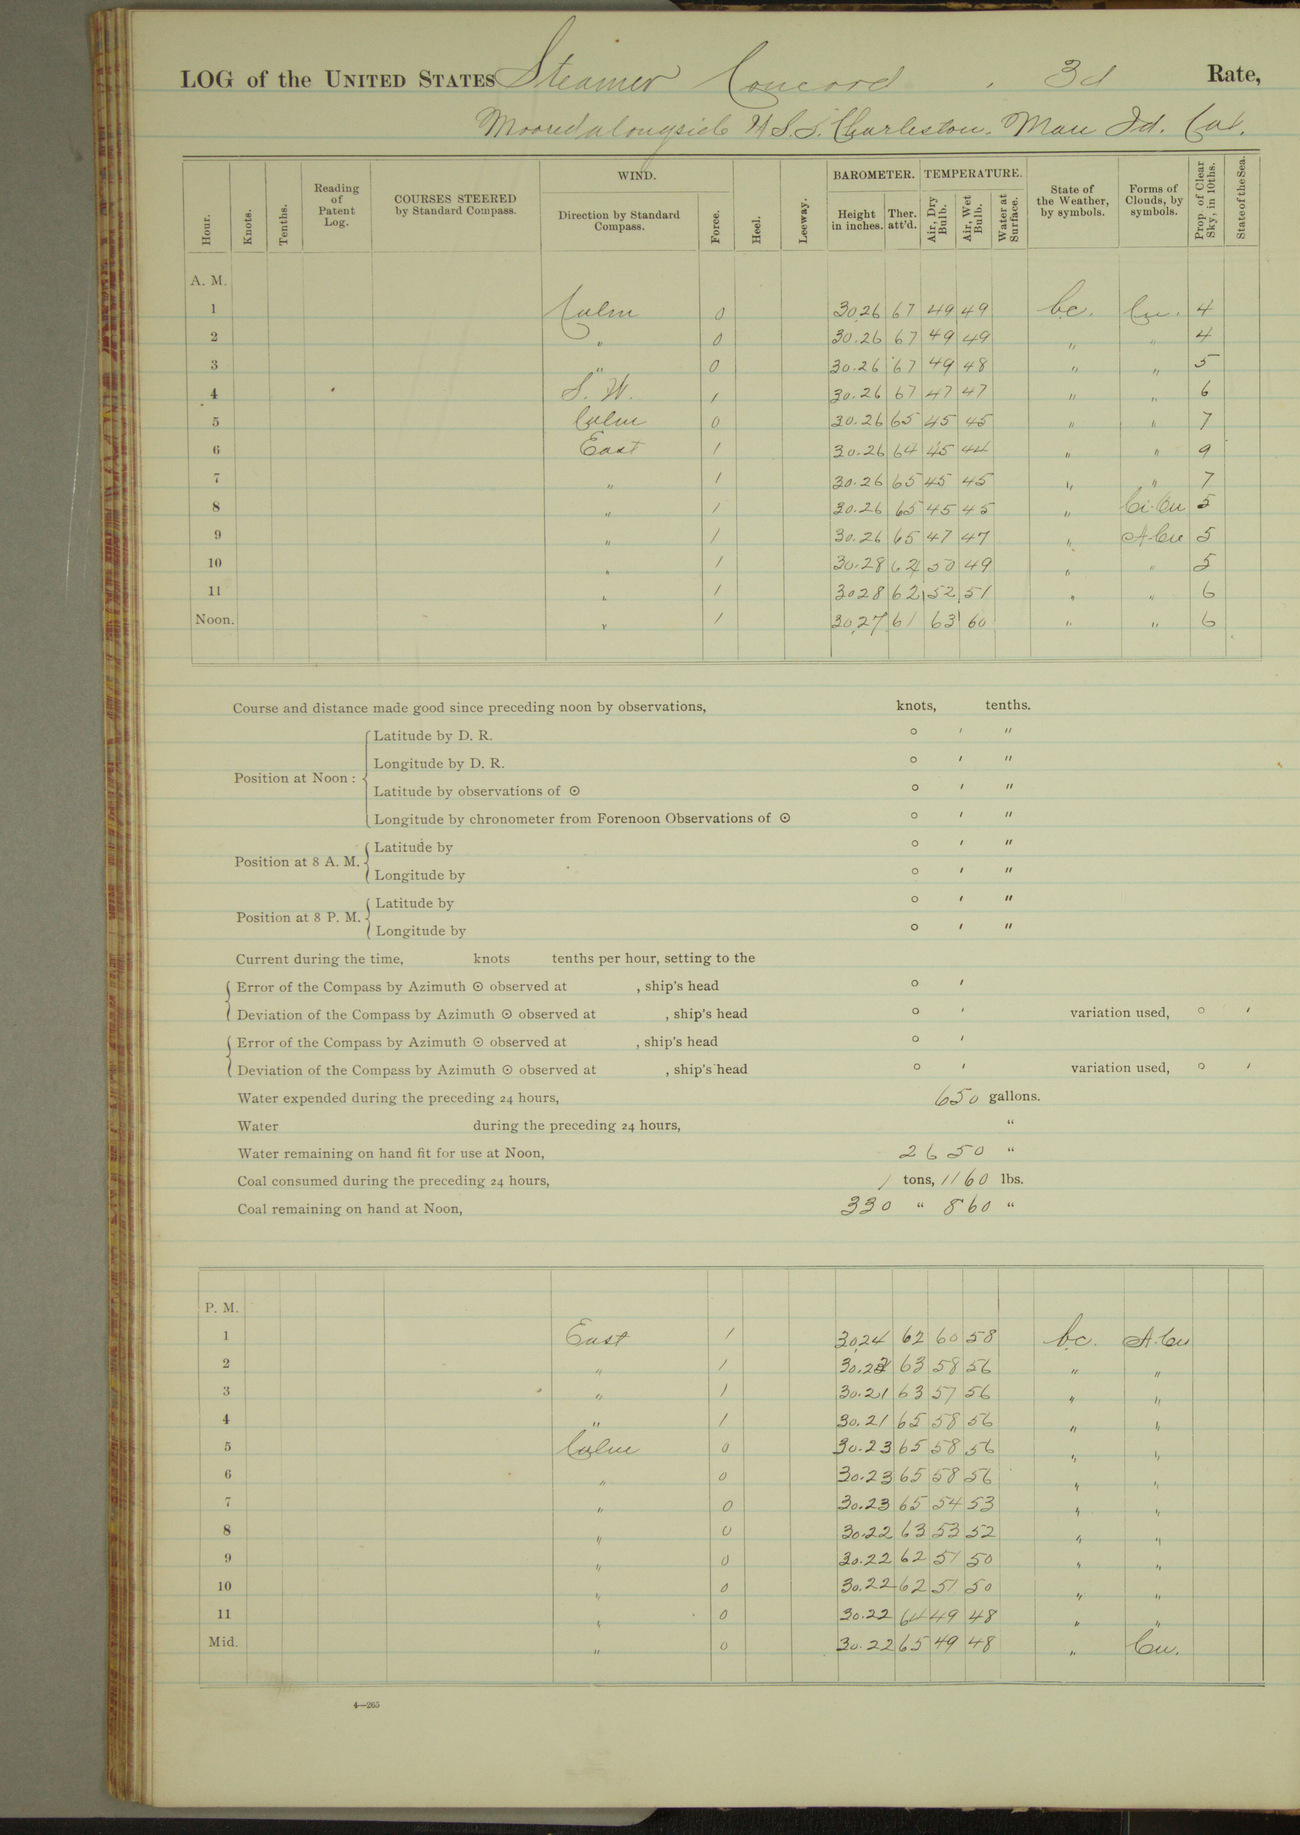 LOG of the UNITED STATES Steamer Concord, 3d Rate,
Moored alongside U.S.S. Charleston. Mare Id. Cal.
Hour. Knots. Tenths. Reading of Patent Log. COURSES STEERED by Standard Compass. WIND. Direction by Standard Compass. Force. Heel. Leeway. BAROMETER. Height in inches. Ther. att'd. TEMPERATURE. Air, Dry Bulb. Air, Wet Bulb. Water at Surface. State of the Weather, by symbols. Forms of Clouds, by symbols. Prop. of Clear Sky, in 10ths. State of the Sea.
A. M.
1 Calm 0 30.26 67 49 49 b.c. Cu. 4
2 " 0 30.26 67 49 49 " " 4
3 " 0 30.26 67 49 48 " " 5
4 S. W. 1 30.26 67 47 47 " " 6
5 Calm 0 30.26 65 45 45 " " 7
6 East 1 30.26 64 45 44 " " 9
7 " 1 30.26 65 45 45 " " 7
8 " 1 30.26 65 45 45 " Ci-Cu 5
9 " 1 30.26 65 47 47 " A-Cu 5
10 " 1 30.28 62 50 49 " " 5
11 " 1 30.28 62 52 51 " " 6
Noon. " 1 30.27 61 63 60 " " 6
Course and distance made good since preceding noon by observations, knots, tenths.
Position at Noon :
Latitude by D. R. ° ′ ″
Longitude by D. R. ° ′ ″
Latitude by observations of ☉ ° ′ ″
Longitude by chronometer from Forenoon Observations of ☉ ° ′ ″
Position at 8 A. M.
Latitude by ° ′ ″
Longitude by ° ′ ″
Position at 8 P. M.
Latitude by ° ′ ″
Longitude by ° ′ ″
Current during the time, knots tenths per hour, setting to the
Error of the Compass by Azimuth ☉ observed at , ship's head ° ′
Deviation of the Compass by Azimuth ☉ observed at , ship's head ° ′ variation used, ° ′
Error of the Compass by Azimuth ☉ observed at , ship's head ° ′
Deviation of the Compass by Azimuth ☉ observed at , ship's head ° ′ variation used, ° ′
Water expended during the preceding 24 hours, 650 gallons.
Water during the preceding 24 hours, "
Water remaining on hand fit for use at Noon, 2650 "
Coal consumed during the preceding 24 hours, 1 tons, 1160 lbs.
Coal remaining on hand at Noon, 330 " 860 "
P. M.
1 East 1 30.24 62 60 58 b.c. A-Cu
2 " 1 30.22 63 58 56 " "
3 " 1 30.21 63 57 56 " "
4 " 1 30.21 65 58 56 " "
5 Calm 0 30.23 65 58 56 " "
6 " 0 30.23 65 58 56 " "
7 " 0 30.23 65 54 53 " "
8 " 0 30.22 63 53 52 " "
9 " 0 30.22 62 51 50 " "
10 " 0 30.22 62 51 50 " "
11 " 0 30.22 64 49 48 " "
Mid. " 0 30.22 65 49 48 " Cu.
4—265